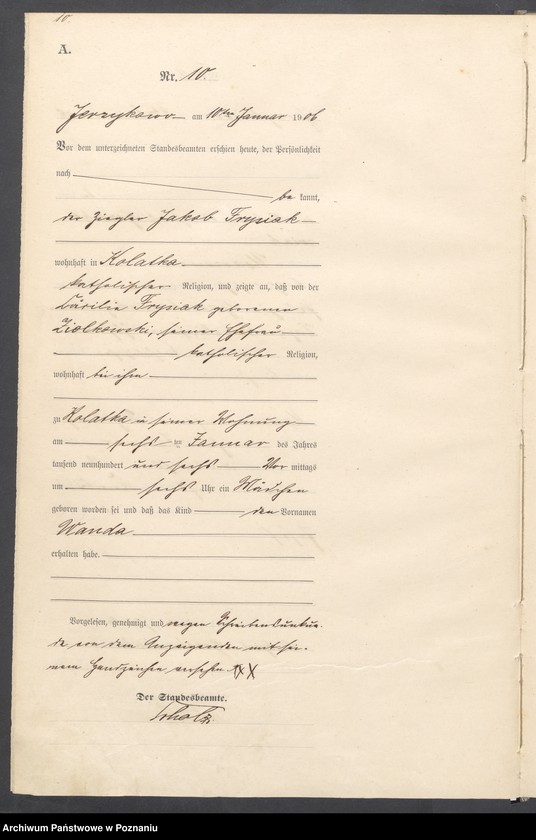 10.
A.
Nr. 10.
Jerzykowo am 10ten Januar 1906
Vor dem unterzeichneten Standesbeamten erschien heute, der Persönlichkeit
nach
be kannt,
der Ziegler Jakob Frysiak
wohnhaft in Kolatka
katholischer Religion, und zeigte an, daß von der
Cäcilie Frysiak geborenen
Ziolkowski, seiner Ehefrau
katholischer Religion,
wohnhaft bei ihm
zu Kolatka in seiner Wohnung
am sechsten Januar des Jahres
tausend neunhundert und sechs Vor mittags
um sechs Uhr ein Mädchen
geboren worden sei und daß das Kind den Vornamen
Wanda
erhalten habe.
Vorgelesen, genehmigt und wegen Schreibensunkun-
de von dem Anzeigenden mit sei-
nem Handzeichen versehen. XXX
Der Standesbeamte.
Archiwum Państwowe w Poznaniu